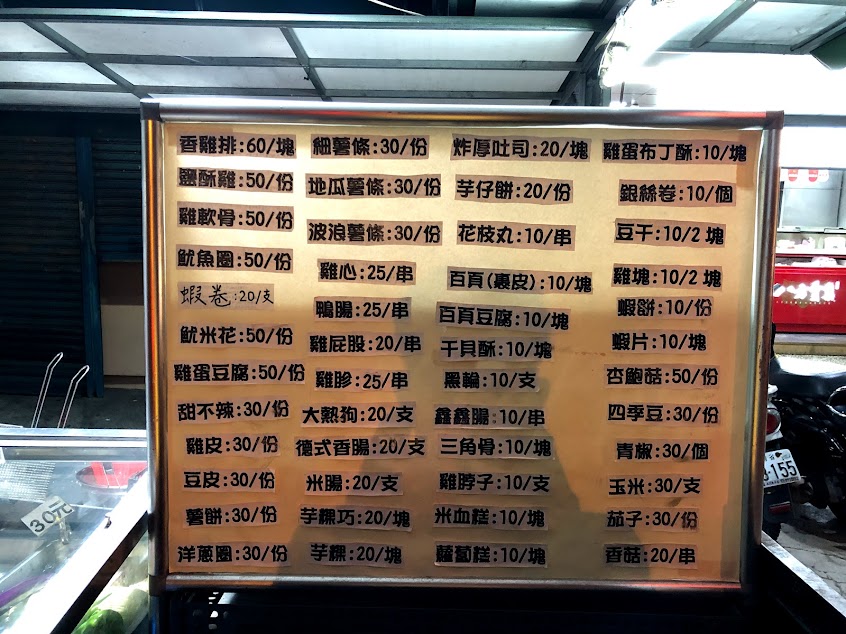 香雞排:60/塊
鹽酥雞:50/份
雞軟骨:50/份
魷魚圈:50/份
蝦卷:20/支
魷米花:50/份
雞蛋豆腐:50/份
甜不辣:30/份
雞皮:30/份
豆皮:30/份
薯餅:30/份
洋蔥圈:30/份
細薯條:30/份
地瓜薯條:30/份
波浪薯條:30/份
雞心:25/串
鴨腸:25/串
雞屁股:20/串
雞胗:25/串
大熱狗:20/支
德式香腸:20/支
米腸:20/支
芋粿巧:20/塊
芋粿:20/塊
炸厚吐司:20/塊
芋仔餅:20/份
花枝丸:10/串
百頁(裹皮):10/塊
百頁豆腐:10/塊
干貝酥:10/塊
黑輪:10/支
鑫鑫腸:10/串
三角骨:10/塊
雞脖子:10/支
米血糕:10/塊
蘿蔔糕:10/塊
雞蛋布丁酥:10/塊
銀絲卷:10/個
豆干:10/2塊
雞塊:10/2塊
蝦餅:10/份
蝦片:10/塊
杏鮑菇:50/份
四季豆:30/份
青椒:30/個
玉米:30/支
茄子:30/份
香菇:20/串
30元